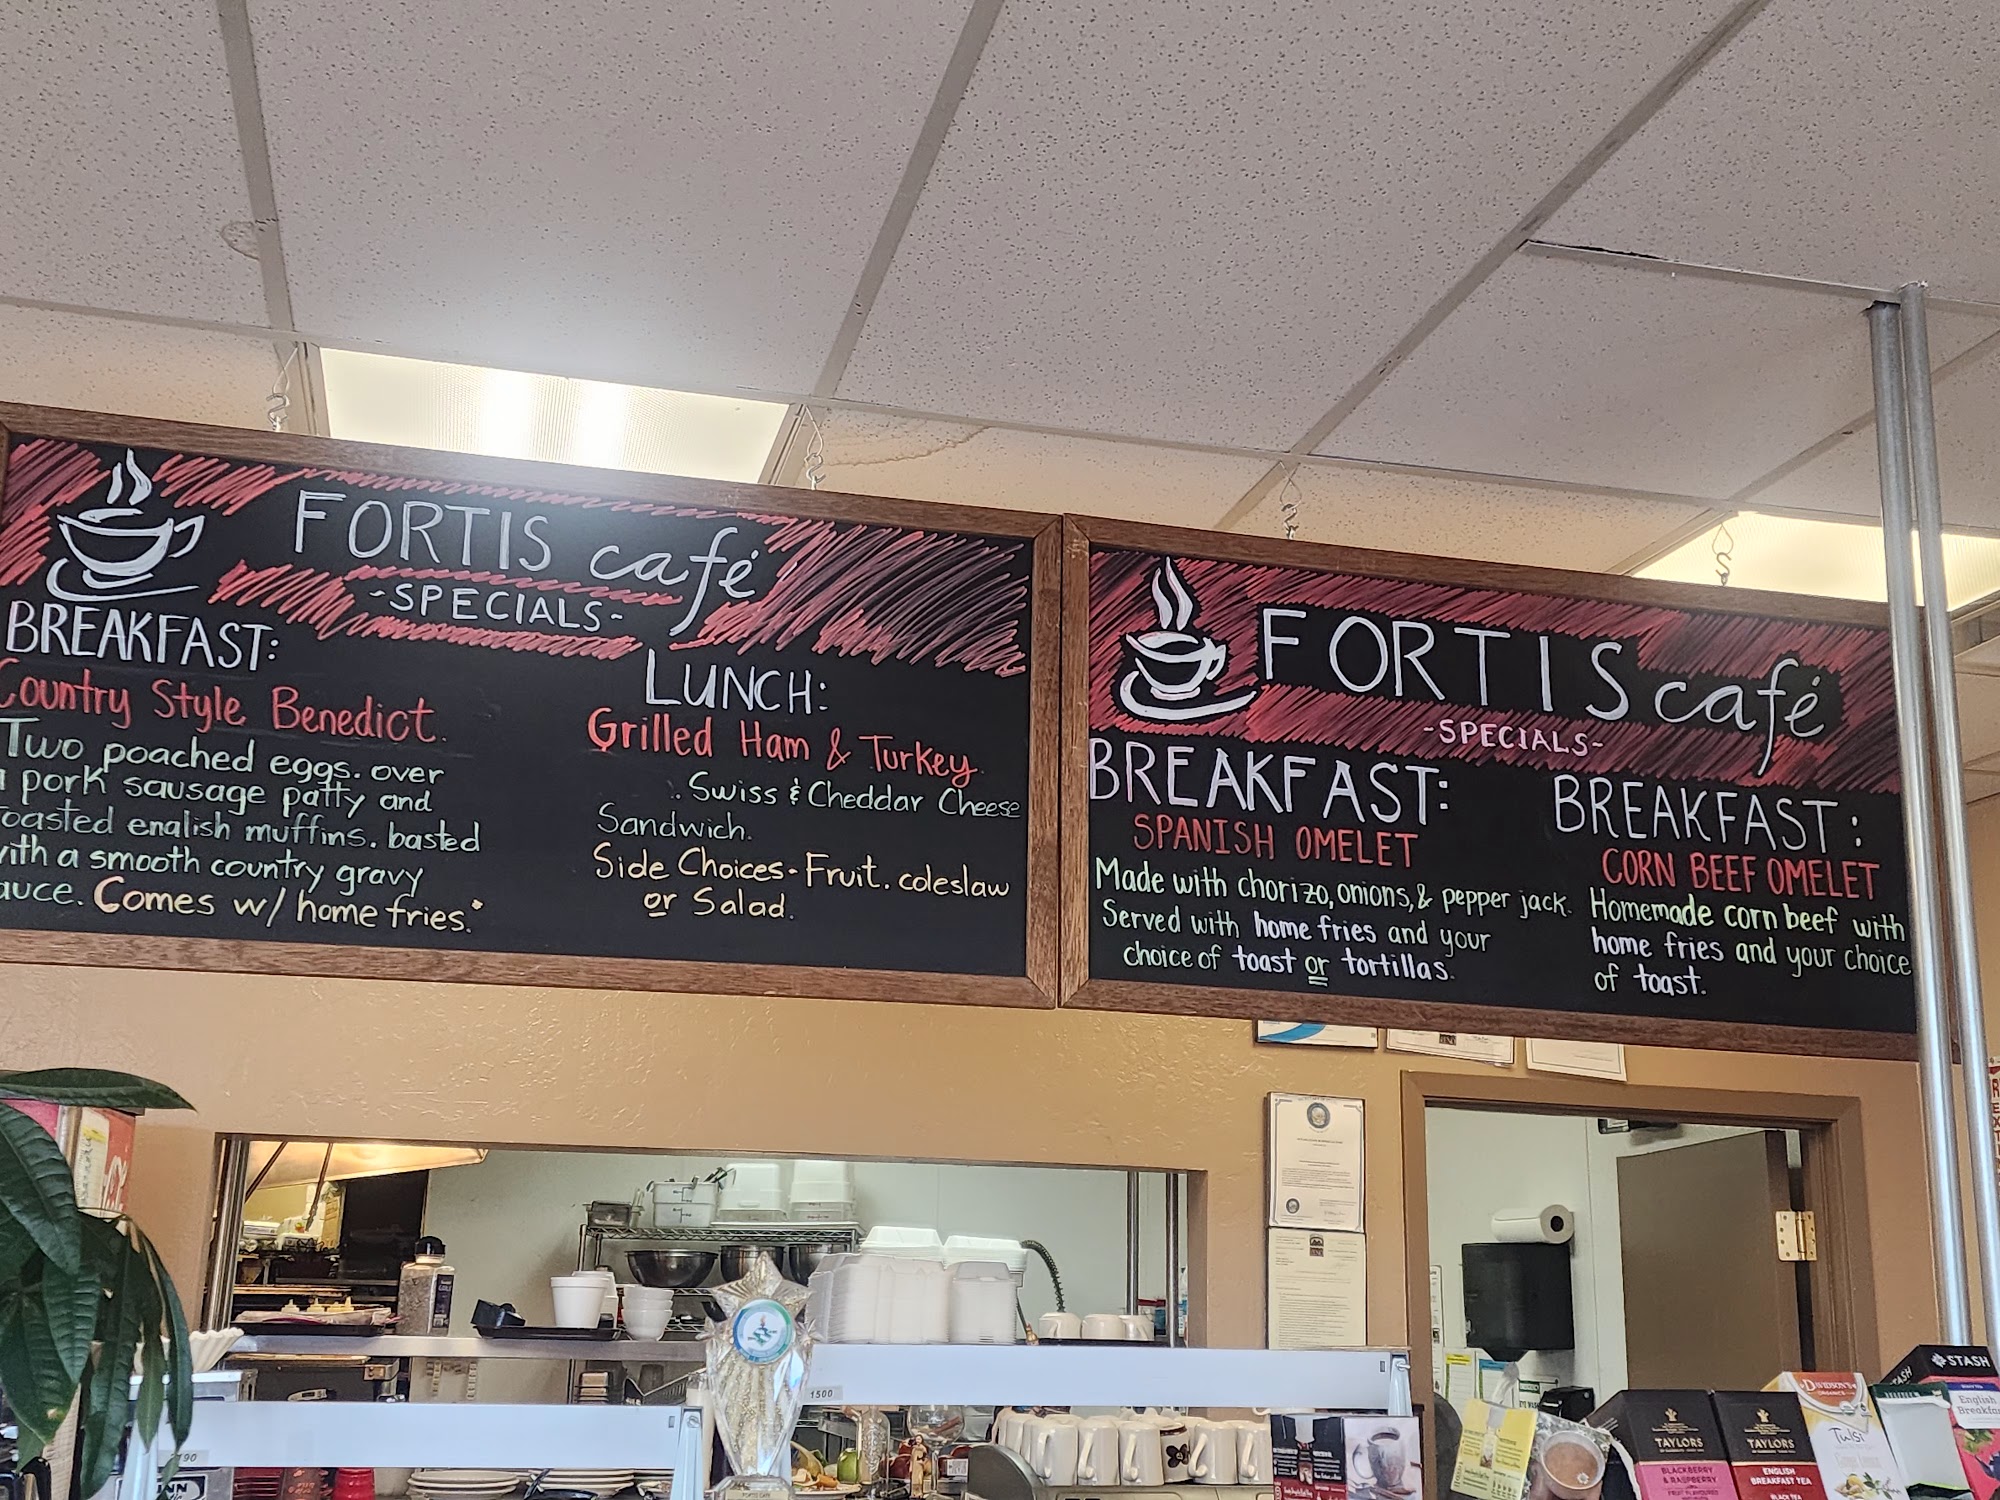 FORTIS café
-SPECIALS-
BREAKFAST:
Country Style Benedict.
Two poached eggs. over
a pork sausage patty and
toasted english muffins. basted
with a smooth country gravy
sauce. Comes w/ home fries.*
LUNCH:
Grilled Ham & Turkey.
. Swiss & Cheddar Cheese
Sandwich.
Side Choices - Fruit. coleslaw
or Salad.
FORTIS café
-SPECIALS-
BREAKFAST:
SPANISH OMELET
Made with chorizo, onions, & pepper jack.
Served with home fries and your
choice of toast or tortillas.
BREAKFAST:
CORN BEEF OMELET
Homemade corn beef with
home fries and your choice
of toast.
1500
STASH
TAYLORS
BLACKBERRY
& RASPBERRY
TAYLORS
ENGLISH
BREAKFAST TEA
BLACK TEA
DAVIDSON'S
ORGANICS
Tulsi
English
Breakfast